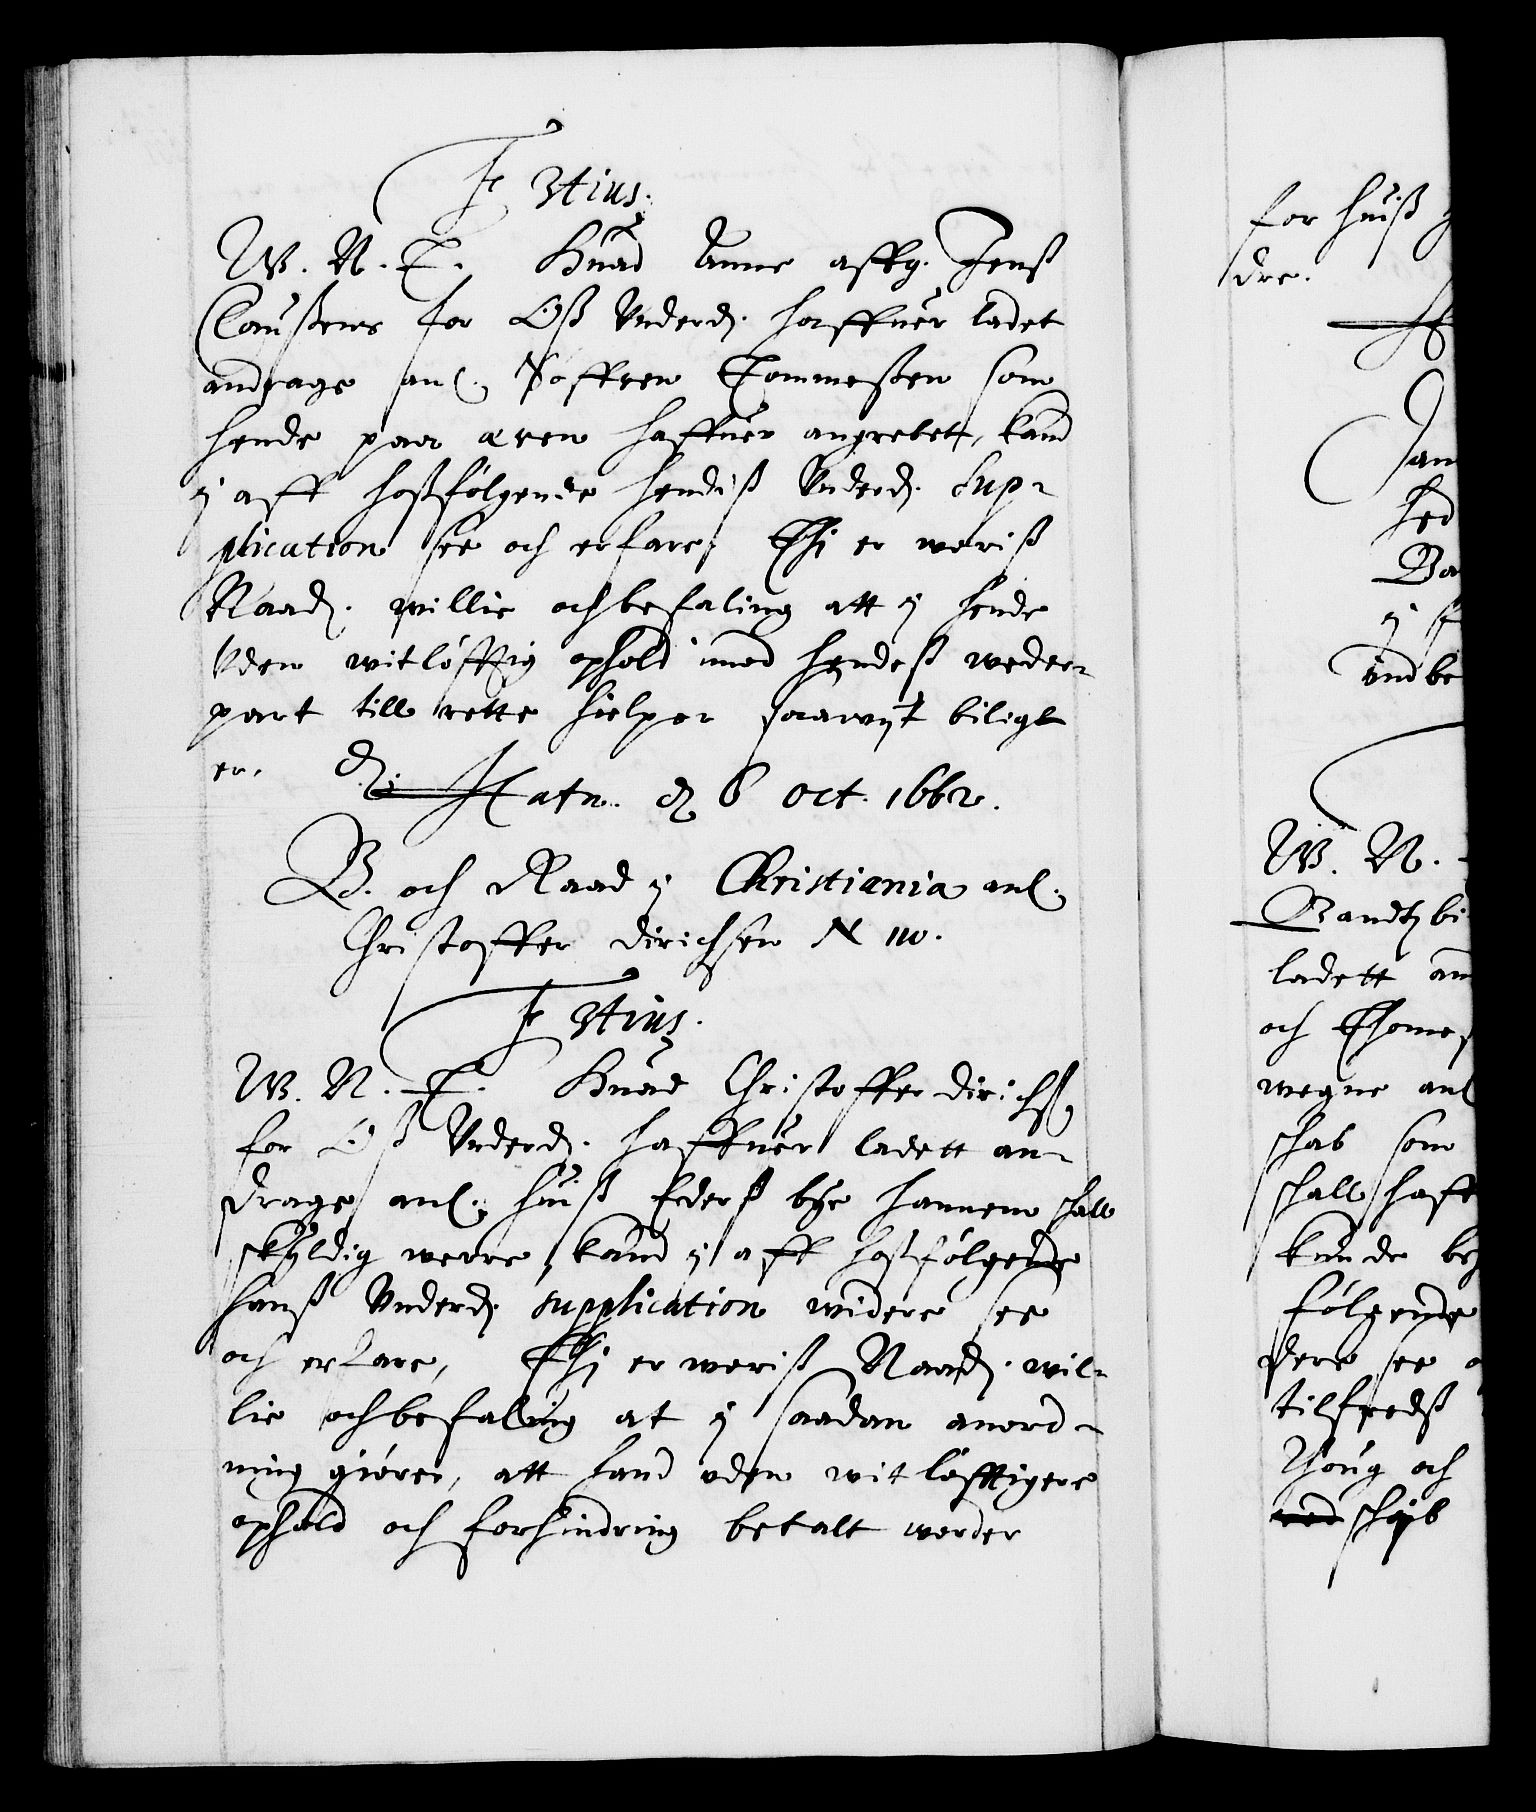 F 3tius.
W. N. T. Huad Anne affg. Jenß
Claußens for Oß Underd. haffuer ladet
andrage anl. Søffren Tommeßen som
hende paa æren haffuer angrebet, kand
j aff hoßfølgende hendiß Underd. Sup-
plication see och erfare, Thj er woriß
Naad. willie och befaling att j hende
Uden witløfftig ophold imod hendeß weder-
part till rette hielper saawit biligt
er. D.
Hafn. d. 6 Oct. 1662.
B. och Raad j Christiania anl.
Christoffer Dirichsen N 110.
F 3tius.
W. N. T. Huad Christoffer Dirichß.
for Oß Underd. haffuer ladett an-
drage anl. huiß Ederß bye hannem shall
skyldig werre, kand j aff hoßfølgende
hanß Underd. supplication widere see
och erfare, Thj er woriß Naad. wil-
lie och befaling at j saadan anord-
ning giører, att hand uden witløfftigere
ophold och forhindring betalt worder
for huiß
dre.
Jan
hed
Bo
j
indbe
W. N.
Bandtzbi
ladett an
och Thomes
wegne anl
shab som
shall haff
kunde be
følgende
dere see
tilfredß
Houg och
shib